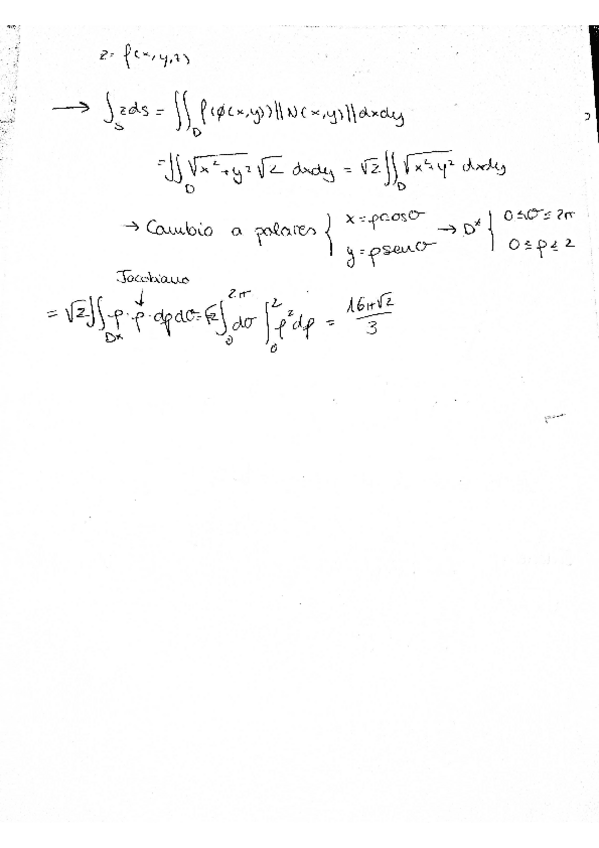 z = f(x,y,z)
→ ∫_S z ds = ∬_D f(φ(x,y)) ||N(x,y)|| dxdy
= ∬_D √(x²+y²) √2 dxdy = √2 ∬_D √(x²+y²) dxdy
→ Cambio a polares { x = ρcosθ y = ρsenθ → D* { 0≤θ≤2π 0≤ρ≤2
Jacobiano
= √2 ∬_D* ρ·ρ·dρdθ = √2 ∫_0^2π dθ ∫_0^2 ρ² dρ = 16π√2/3